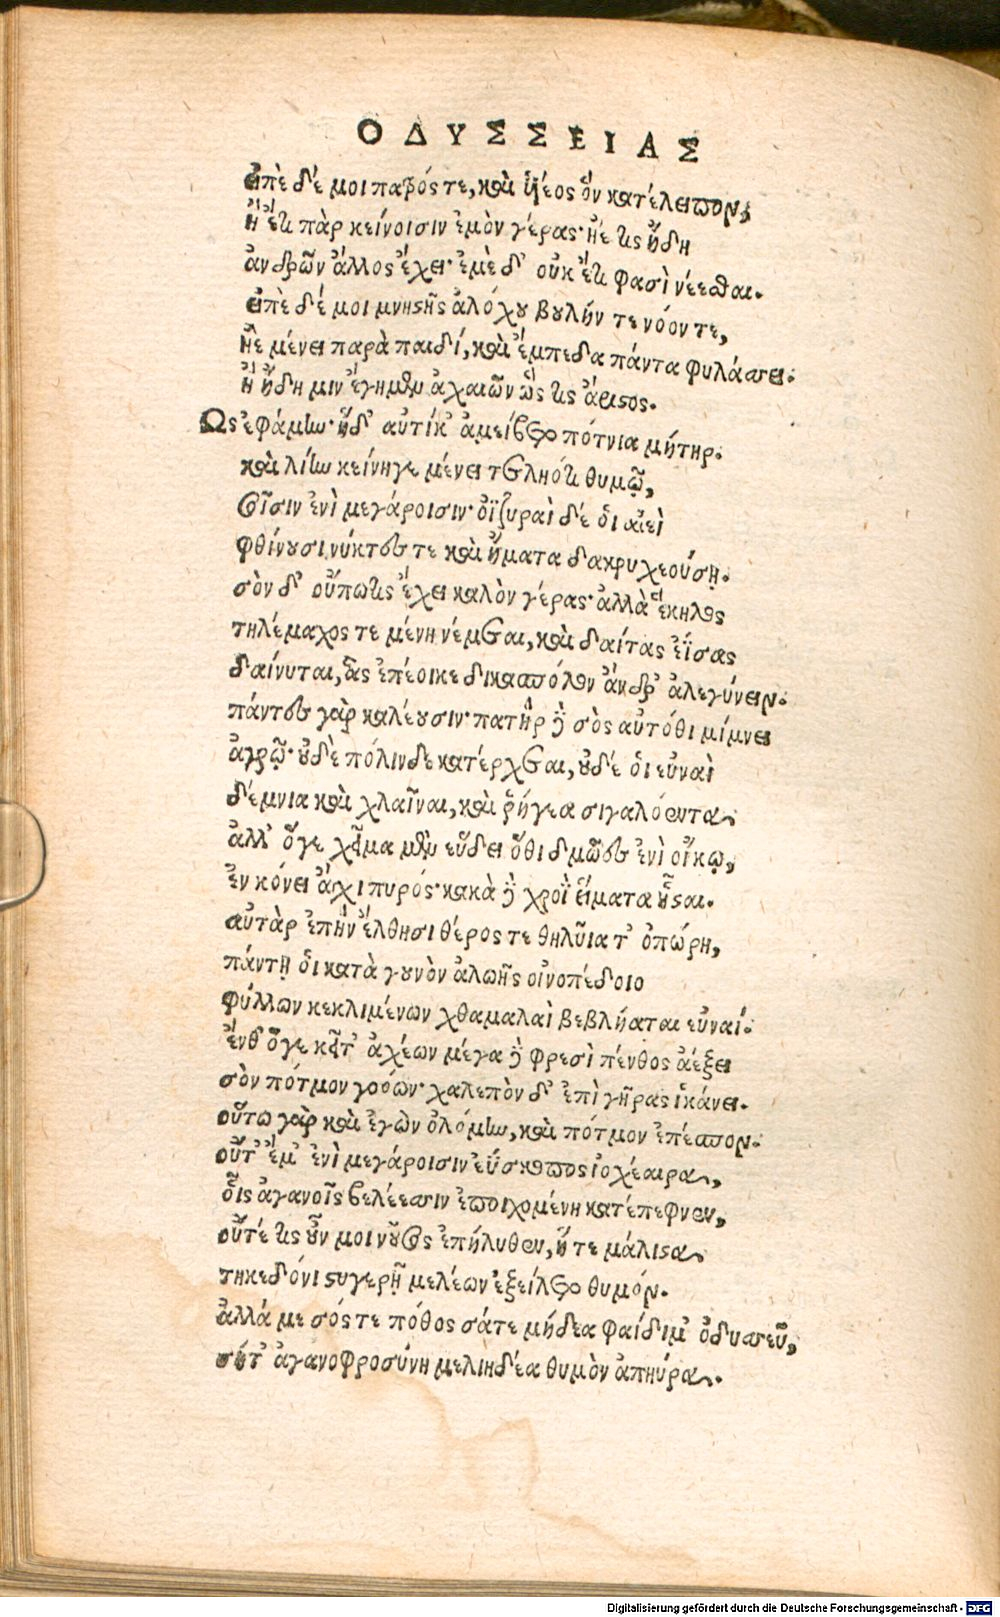 ΟΔΥΣΣΕΙΑΣ
εἰπὲ δέ μοι πατρός τε, καὶ ἱῆέος ὃν κατέλειπον,
ἢ ἔτι πὰρ κείνοισιν ἐμὸν γέρας· ἠέ τις ἤδη
ἀνδρῶν ἄλλος ἔχει· ἐμὲ δ' οὐκ ἔτι φασὶ νέεσθαι.
εἰπὲ δέ μοι μνηστῆς ἀλόχου βουλήν τε νόον τε,
ἠὲ μένει παρὰ παιδί, καὶ ἔμπεδα πάντα φυλάσσει.
ἢ ἤδη μιν ἔγημεν ἀχαιῶν ὅς τις ἄριστος.
Ως ἐφάμην· ἡδ' αὐτίκ' ἀμείβετο πότνια μήτηρ.
καὶ λίην κείνηγε μένει τετληότι θυμῷ,
σοῖσιν ἐνὶ μεγάροισιν· ὀϊζυραὶ δέ ὁι αἰεὶ
φθίνουσι νύκτες τε καὶ ἤματα δακρυχεούσῃ.
σὸν δ' οὔπω τις ἔχει καλὸν γέρας· ἀλλὰ ἕκηλος
τηλέμαχος τεμένη νέμεται, καὶ δαίτας ἐΐσας
δαίνυται, ἃς ἐπέοικε δικασπόλον ἄνδρ' ἀλεγύνειν.
πάντες γὰρ καλέουσιν· πατὴρ δὲ σὸς αὐτόθι μίμνει
ἀγρῷ· οὐδὲ πόλινδε κατέρχεται, οὐδέ ὁι εὐναὶ
δέμνια καὶ χλαῖναι, καὶ ῥήγεα σιγαλόεντα.
ἀλλ' ὅγε χεῖμα μὲν εὕδει ὅθι δμῶες ἐνὶ οἴκῳ,
ἐν κόνει ἄγχι πυρός· κακὰ δὲ χροῒ εἵματα ἧσται.
αὐτὰρ ἐπὴν ἔλθησι θέρος τε θηλῦια τ' ὀπώρη,
πάντῃ ὁι κατὰ γουνὸν ἀλωῆς οἰνοπέδοιο
φύλλων κεκλιμένων χθαμαλαὶ βεβλήαται εὐναί.
ἔνθ' ὅγε κεῖτ' ἀχέων μέγα δὲ φρεσὶ πένθος ἀέξει
σὸν πότμον γοόων· χαλεπὸν δ' ἐπὶ γῆρας ἱκάνει.
οὕτω γὰρ καὶ ἐγὼν ὀλόμην, καὶ πότμον ἐπέσπον.
οὔτ' ἔμ' ἐνὶ μεγάροισιν ἐΰσκοπος ἰοχέαιρα,
οἷς ἀγανοῖς βελέεσσιν ἐποιχομένη κατέπεφνεν,
οὔτέ τις οὖν μοι νοῦσος ἐπήλυθεν, ἥ τε μάλιστα
τηκεδόνι στυγερῇ μελέων ἐξείλετο θυμόν.
ἀλλά με σός τε πόθος σά τε μήδεα φαίδιμ' ὀδυσσεῦ,
σήτ' ἀγανοφροσύνη μελιηδέα θυμὸν ἀπηύρα.
Digitalisierung gefördert durch die Deutsche Forschungsgemeinschaft - DFG